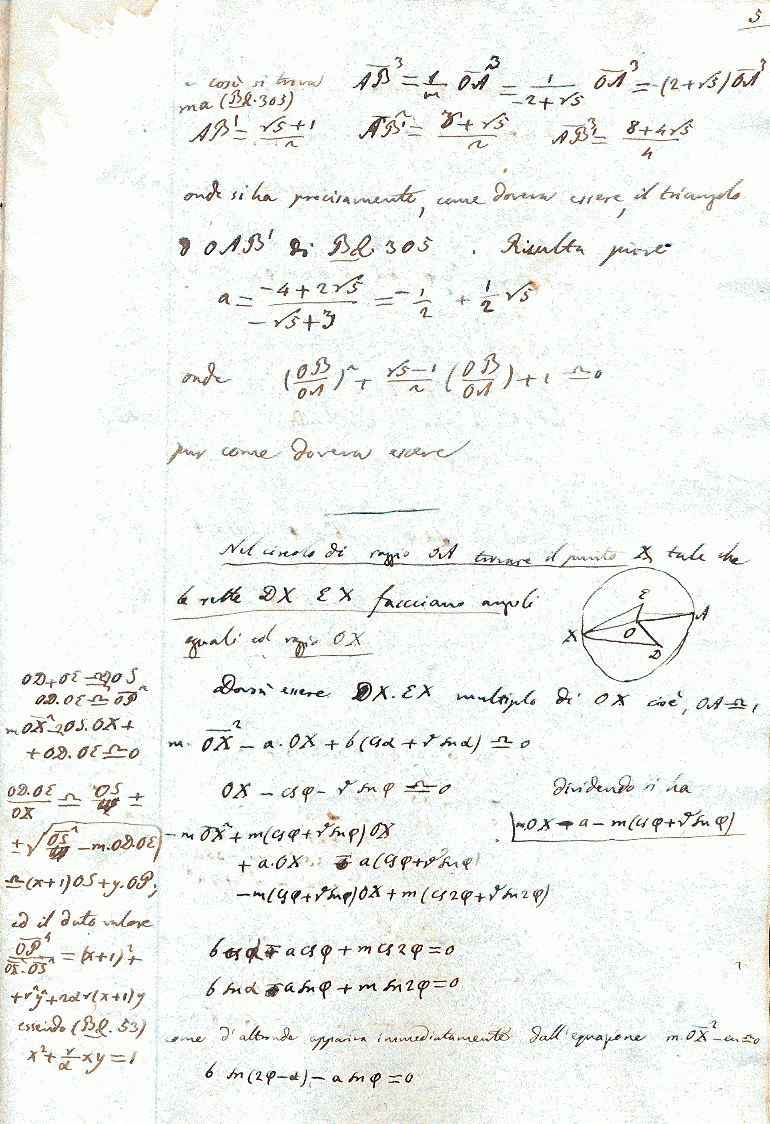 5
così si trova AB³ = 1/m OA³ = 1/(-2+√5) OA³ = (2+√5) OA³
ma (Bl. 303)
AB' = (√5+1)/2 AB'² = (3+√5)/2 AB'³ = (8+4√5)/4
onde si ha precisamente, come doveva essere, il triangolo
OAB' di Bl. 305 . Risulta pure
a = (-4+2√5)/(-√5+3) = -1/2 + 1/2 √5
onde (OB/OA)² + (√5-1)/2 (OB/OA) + 1 ≏ 0
pur come doveva essere
Nel circolo di raggio OA trovare il punto X, tale che
le rette DX EX facciano angoli
eguali col raggio OX
X E O A D
Dovrà essere DX.EX multiplo di OX cioè, OA ≏ 1
m.OX² - a.OX + b(csα + √snα) ≏ 0
OX - csφ - √snφ ≏ 0 dividendo si ha
-mOX² + m(csφ+√snφ)OX mOX - a - m(csφ+√snφ)
+ a.OX - a(csφ+√snφ)
-m(csφ+√snφ)OX + m(cs2φ+√sn2φ)
b csα - a csφ + m cs2φ = 0
b snα - a snφ + m sn2φ = 0
come d'altronde appariva immediatamente dall'equazione m.OX² - ≏ 0
b sn(2φ-α) - a snφ = 0
OD+OE ≏ 2OS
OD.OE ≏ OP²
mOX² - 2OS.OX +
+ OD.OE ≏ 0
OD.OE/OX ≏ OS ±
± √(OS² - m.OD.OE)
≏ (x+1)OS + y.OP;
ed il dato valore
OP⁴/OX².OS² = (x+1)² +
+ r²y² + 2αr(x+1)y
essendo (Bl. 53)
x² + r/α xy = 1